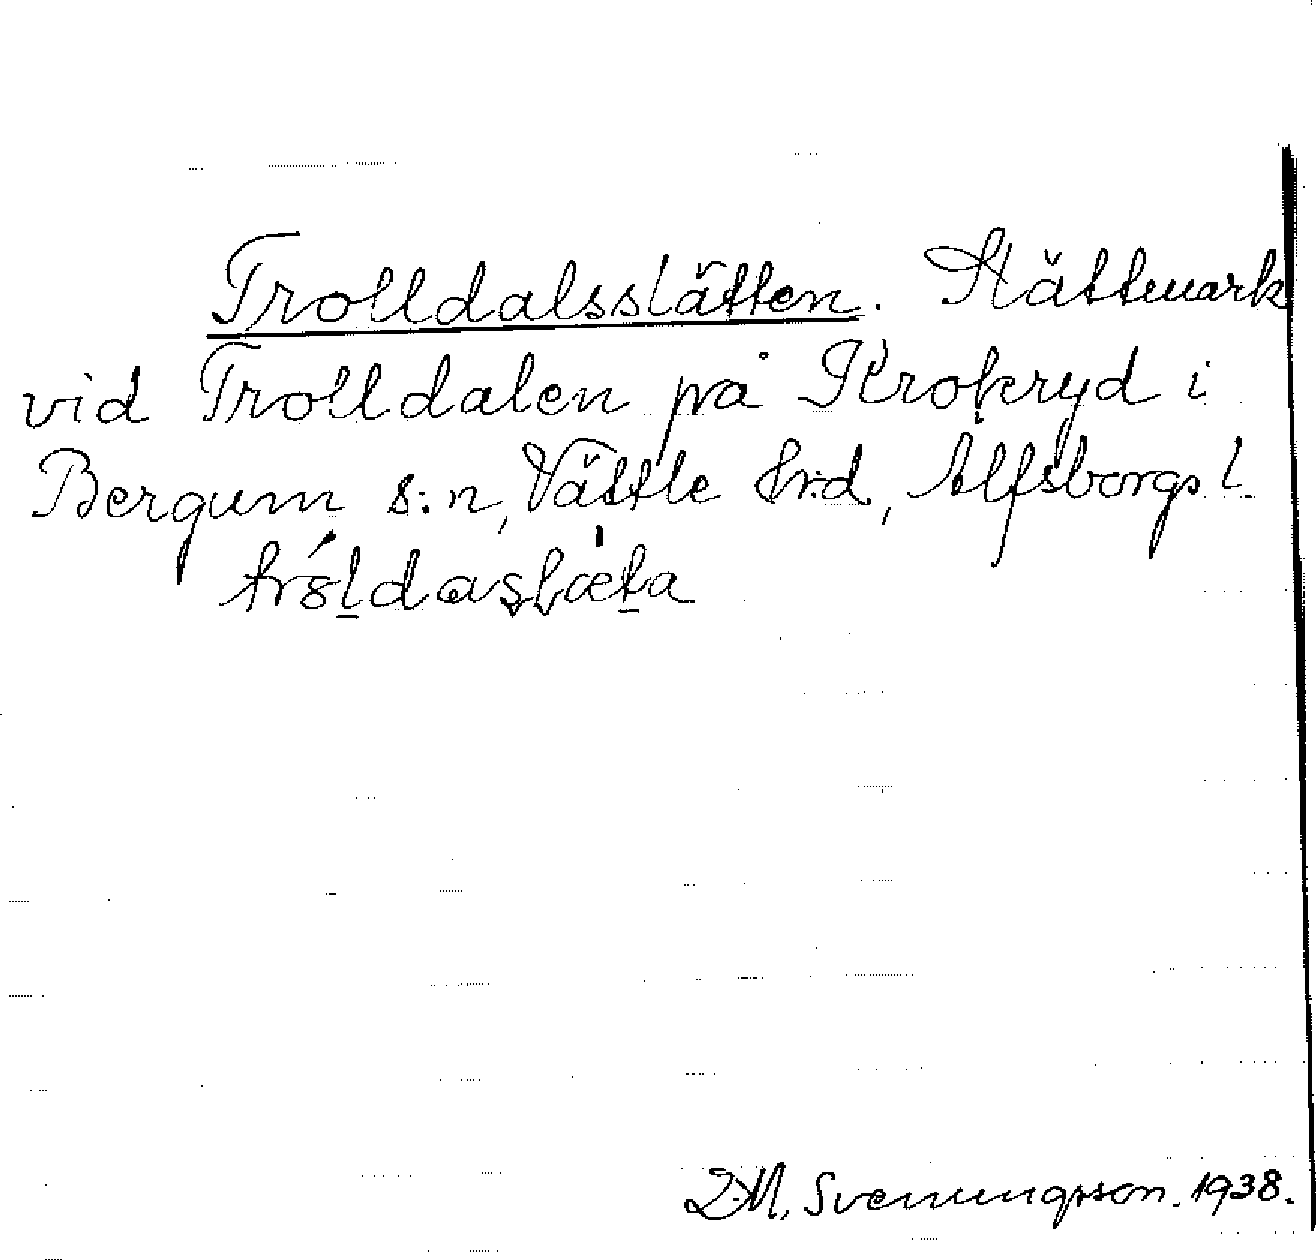 Trolldalsslätten. Slättmark
vid Trolldalen på Krokryd i
Bergum s:n, Vättle hrd, Älfsborgs l.
D.M. Svenungsson. 1938.